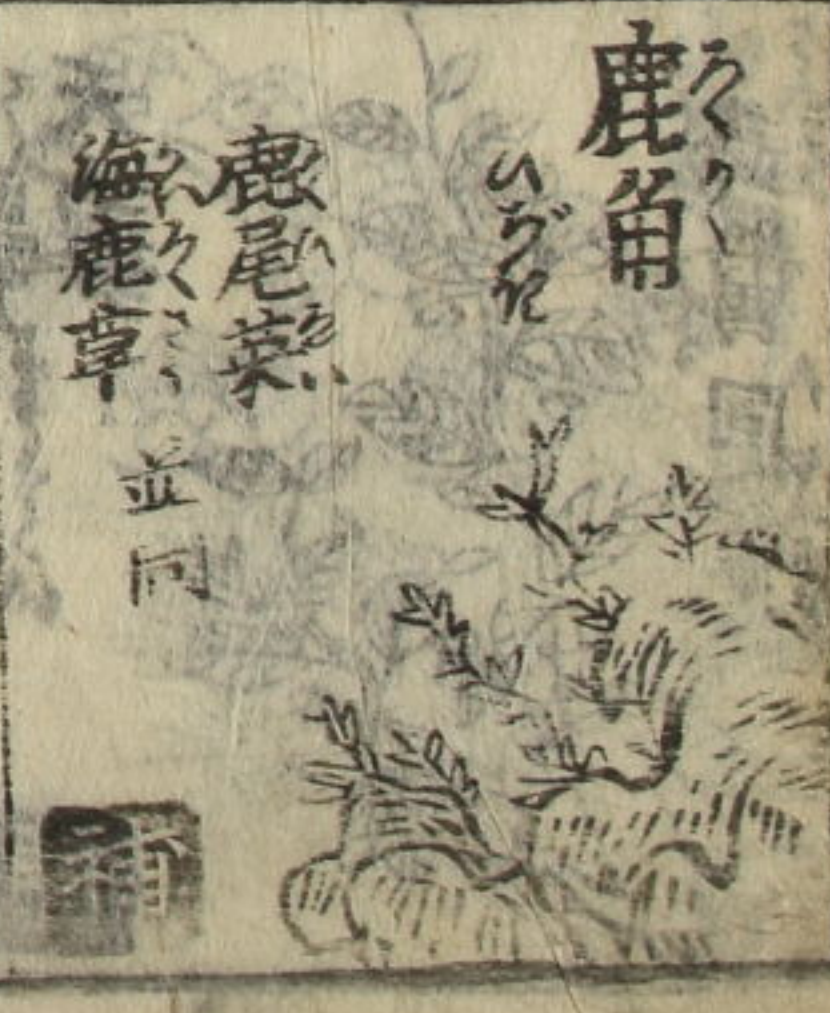 鹿角
ろくかく
ひぢき
鹿尾菜
ろくびさい
海鹿草
かいろくさう
並同
補